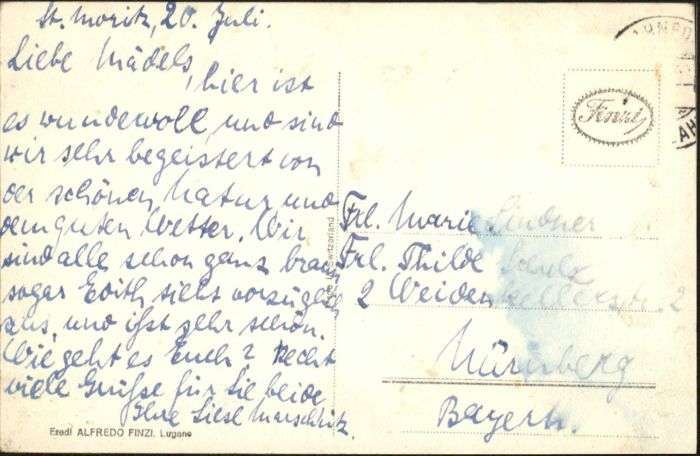 St. Moritz, 20. Juli.
Liebe Mädels,
hier ist
es wundewoll und sind
wir sehr begeistert von
der schönen Natur und
dem guten Wetter. Wir
sind alle schon ganz braun
sogar Edith sieht vorzüglich
aus, und ißt sehr schön.
Wie geht es Euch? Recht
viele Grüße für Sie beide
Ihre Liesl Marschütz.
Eredi ALFREDO FINZI. Lugano
Switzerland
Finzi
Frl. Marie Lindner
Frl. Thilde
2 Weidenkellerstr. 2
Nürnberg
Bayern.